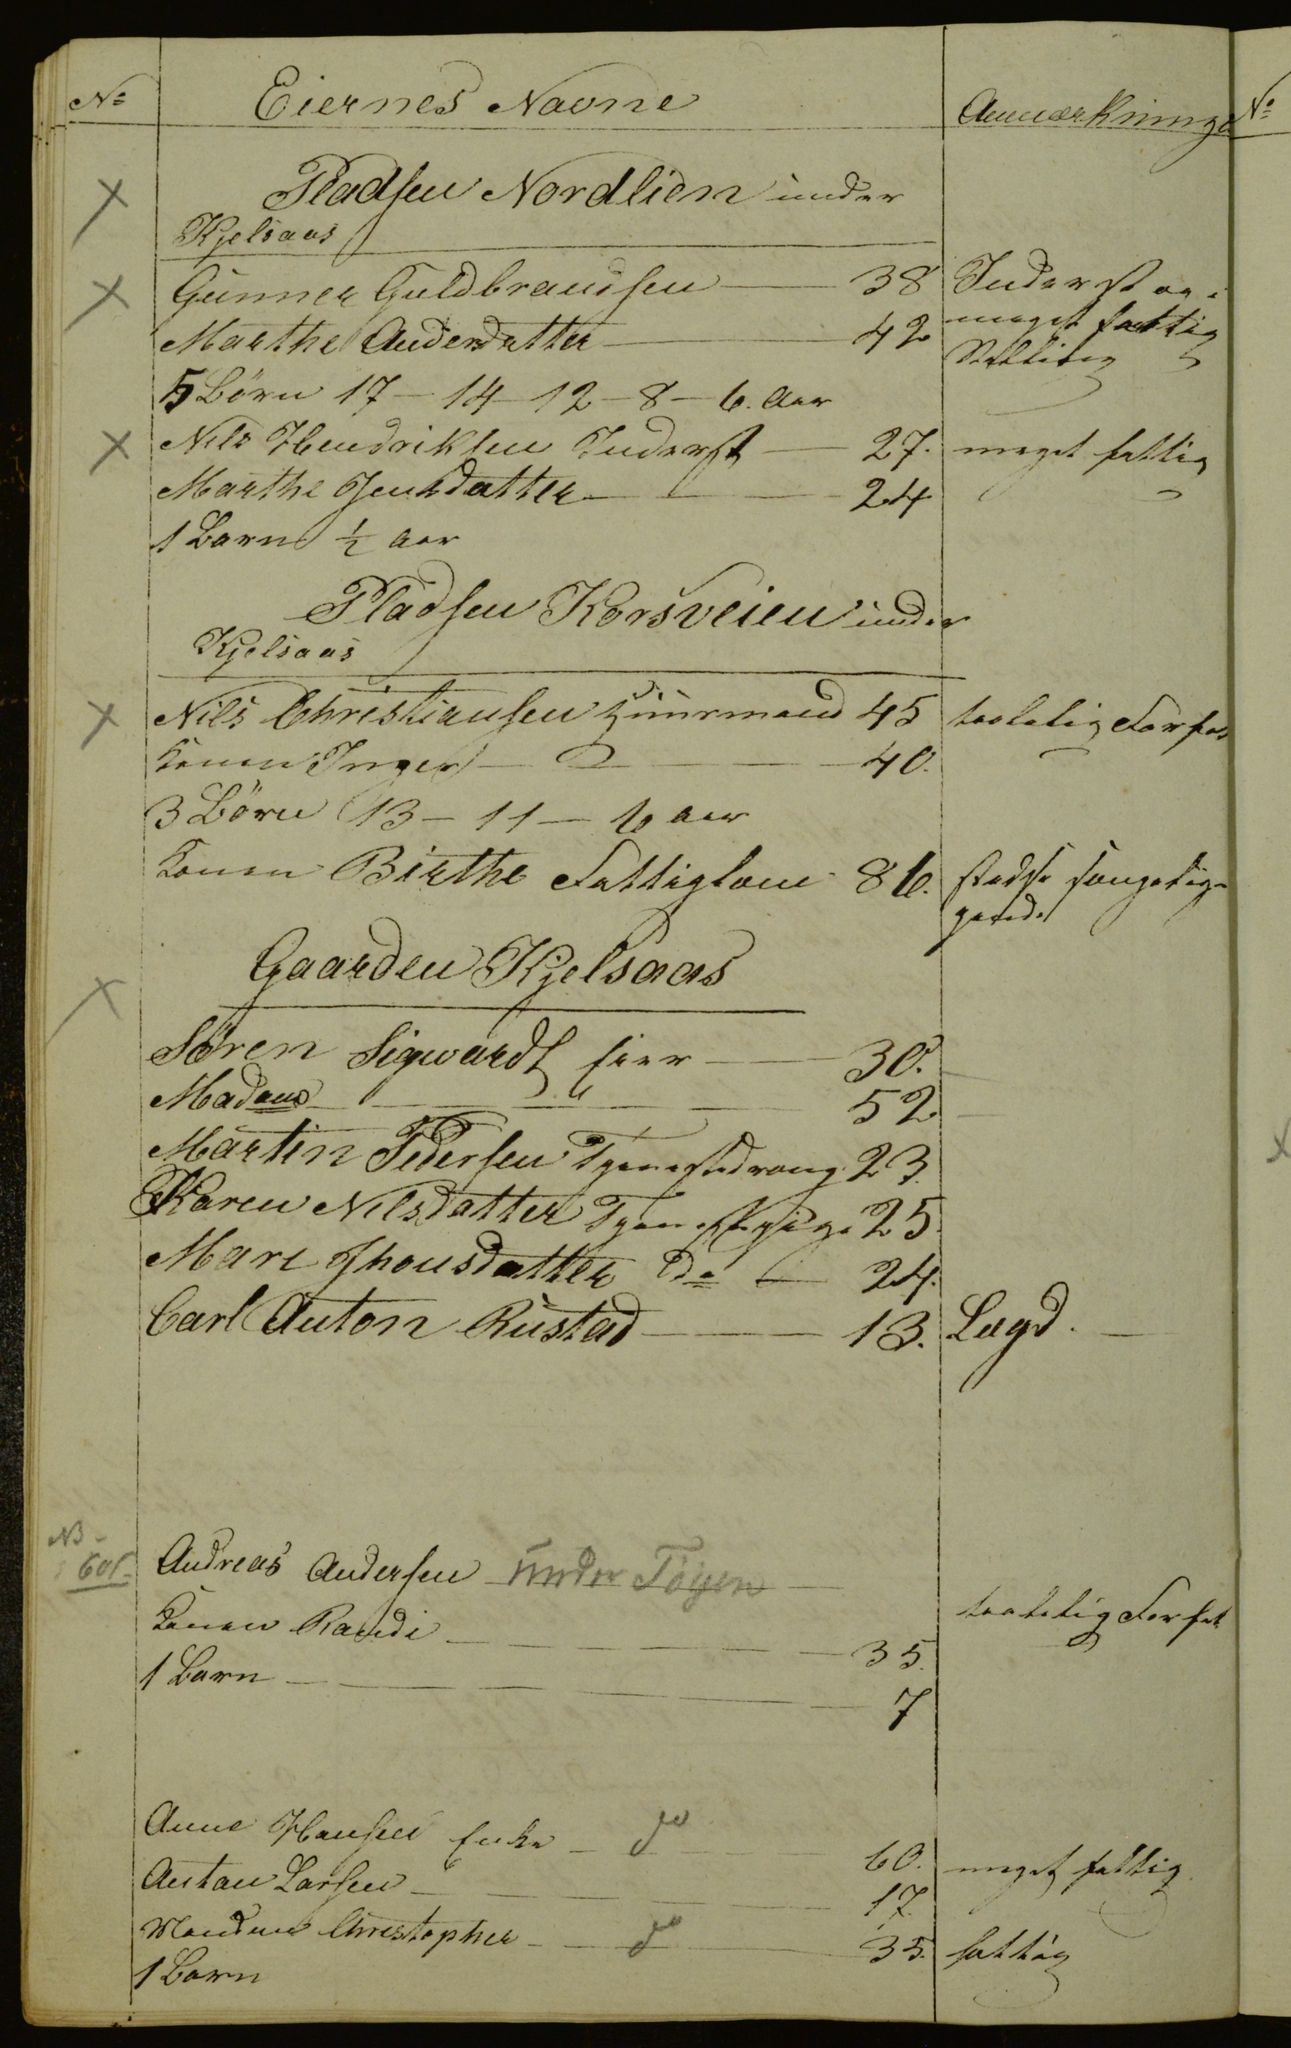 No Eiernes Navne Anmærkninge No
Pladsen Nordlien under
Kjelsaas
Gunner Guldbrandsen 38 Inderst
meget fattig
Marthe Andersdatter 42
Stilling
5 Børn 17 - 14 - 12 - 8 - 6. Aar
Nils Hendriksen Inderst 27. meget fattig
Marthe Jensdatter 24
1 Barn ½ Aar
Pladsen Korsveien under
Kjelsaas
Nils Christiansen Huusmand 45 taalelig Forfat
Konen Inger 40.
3 Børn 13 - 11 - 6 Aar
Konen Birthe Fattiglem 86. stedse sengelig-
gende
Gaarden Kjelsaas
Søren Sigwardt Eier 30.
Madam 52
Martin Pedersen Tjenestedreng 23.
Karen Nilsdatter Tjenestepige 25.
Mari Jhonsdatter do 24.
Carl Anton Rustad 13. Lægd.
NB
601
Andreas Andersen under Tøyen
taalelig Forfat
Konen Randi 35.
1 Barn 7
Anne Hansen Enke do 60. meget fattig
Anton Larsen 17.
Manden Christopher do 35. fattig
1 Barn